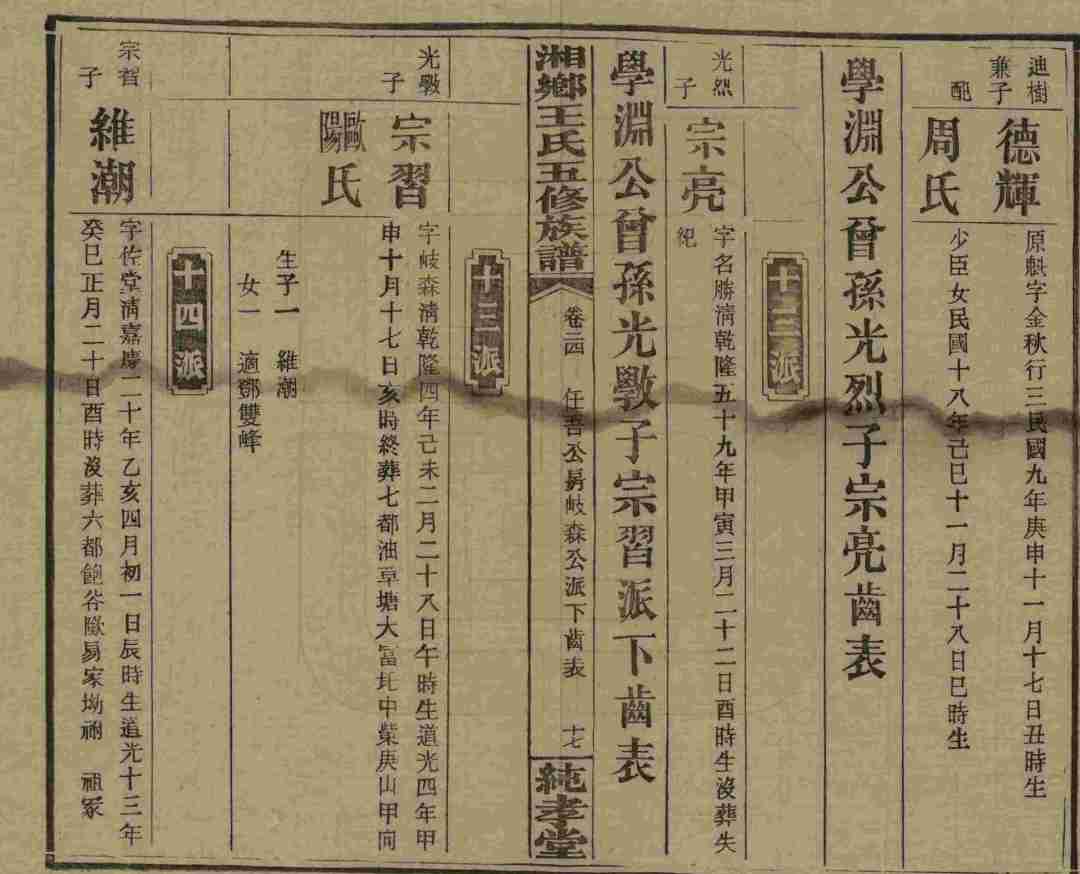 迪樹
兼子
德輝
原魁字金秋行三民國九年庚申十一月十七日丑時生
配
周氏
少臣女民國十八年己巳十一月二十八日巳時生
學淵公曾孫光烈子宗亮齒表
十三派
光烈
子
宗亮
字名勝淸乾隆五十九年甲寅三月二十二日酉時生沒葬失
紀
學淵公曾孫光斆子宗習派下齒表
湘鄉王氏五修族譜
卷二四
任吾公房岐森公派下齒表
十七
純孝堂
十三派
光斆
子
宗習
字岐森淸乾隆四年己未二月二十八日午時生道光四年甲
申十月十七日亥時終葬七都油草塘大富圫中紫庚山甲向
歐陽氏
生子一 維潮
女一 適鄧雙峰
十四派
宗習
子
維潮
字佐堂淸嘉慶二十年乙亥四月初一日辰時生道光十三年
癸巳正月二十日酉時沒葬六都鮑谷歐易家坳祔 祖冢